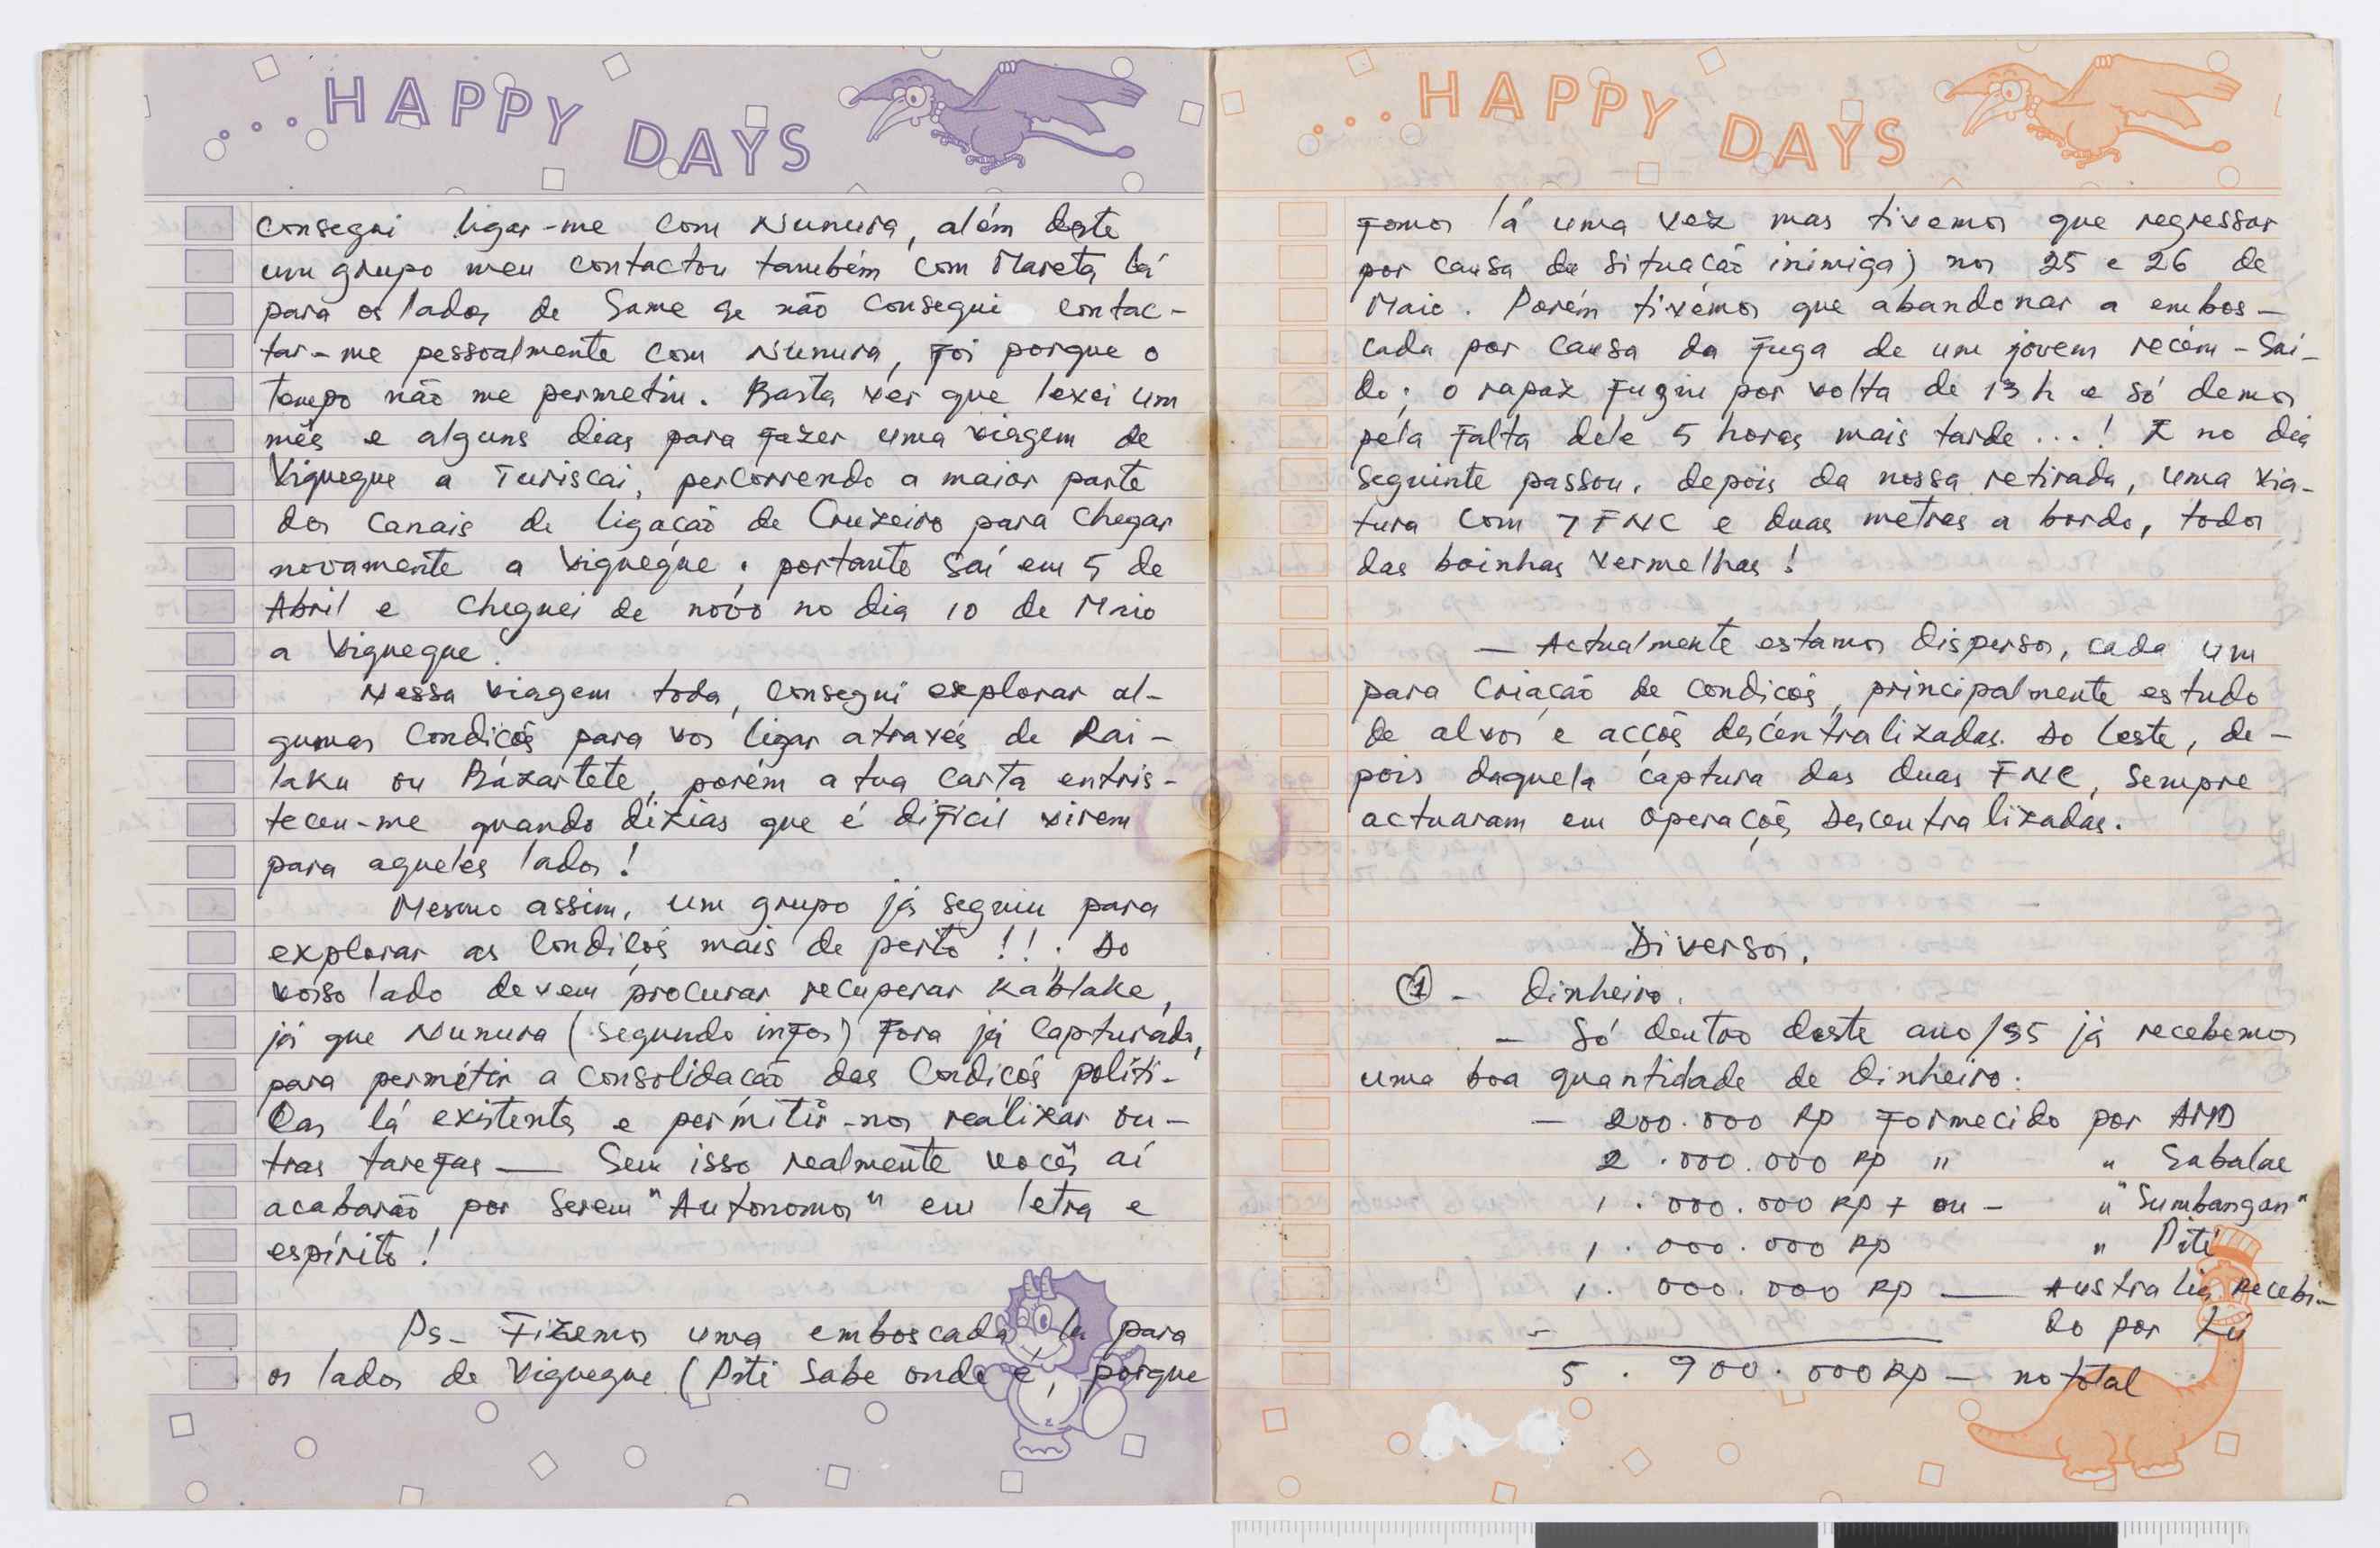 ...HAPPY DAYS
consegui ligar-me com Nunura, além deste
um grupo meu contactou também com Mareta lá
para os lados de Same se não consegui contac-
tar-me pessoalmente com Nunura, foi porque o
tempo não me permetiu. Basta ver que levei um
mês e alguns dias para fazer uma viagem de
Viqueque a Turiscai, percorrendo a maior parte
dos canais de ligação de Cruzeiro para chegar
novamente a Viqueque; portanto saí em 5 de
Abril e cheguei de novo no dia 10 de Maio
a Viqueque.
Nessa viagem toda, consegui explorar al-
gumas condições para vos ligar através de Rai-
laku ou Bazartete, porém a tua carta entris-
teceu-me quando dizias que é difícil virem
para aqueles lados!
Mesmo assim, um grupo já seguiu para
explorar as condições mais de perto!!. Do
vosso lado devem procurar recuperar Kablake,
já que Nunura (segundo infos) fora já capturada,
para permitir a consolidação das condições políti-
cas lá existentes e permitir-nos realizar ou-
tras tarefas — Sem isso realmente vocês aí
acabarão por serem "Autonomos" em letra e
espírito!
Ps- Fizemos uma emboscada, lá para
os lados de Viqueque (Piti sabe onde é, porque
...HAPPY DAYS
fomos lá uma vez mas tivemos que regressar
por causa da situação inimiga) nos 25 e 26 de
Maio. Porém tivémos que abandonar a embos-
cada por causa da fuga de um jovem recém-saí-
do; o rapaz fugiu por volta de 13h e só demos
pela falta dele 5 horas mais tarde...! E no dia
seguinte passou, depois da nossa retirada, uma via-
tura com 7 FNC e duas metras a bordo, todos
das boinhas vermelhas!
— Actualmente estamos dispersos, cada um
para criação de condições, principalmente estudo
de alvos e acções descentralizadas. Do leste, de-
pois daquela captura das duas FNC, sempre
actuaram em operações descentralizadas.
Diversos.
1 - Dinheiro.
- Só dentro deste ano/95 já recebemos
uma boa quantidade de dinheiro:
- 200.000 RP formecido por AMD
2.000.000 RP " " Sabalae
1.000.000 RP + ou - " "Sumbangan"
1.000.000 RP " Piti
1.000.000 RP — Australia recebi-
do por Lú
5.900.000 RP — no total